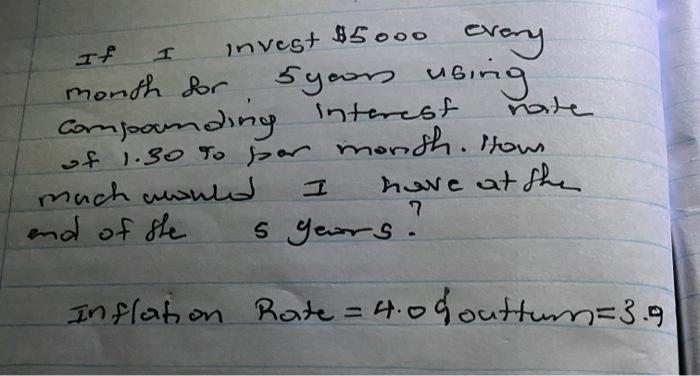 If I invest $5000 every
month for 5 years using
compounding interest rate
of 1.30 % per month. How
much would I have at the
end of the 5 years?
Inflation Rate = 4.0 & outturn = 3.9